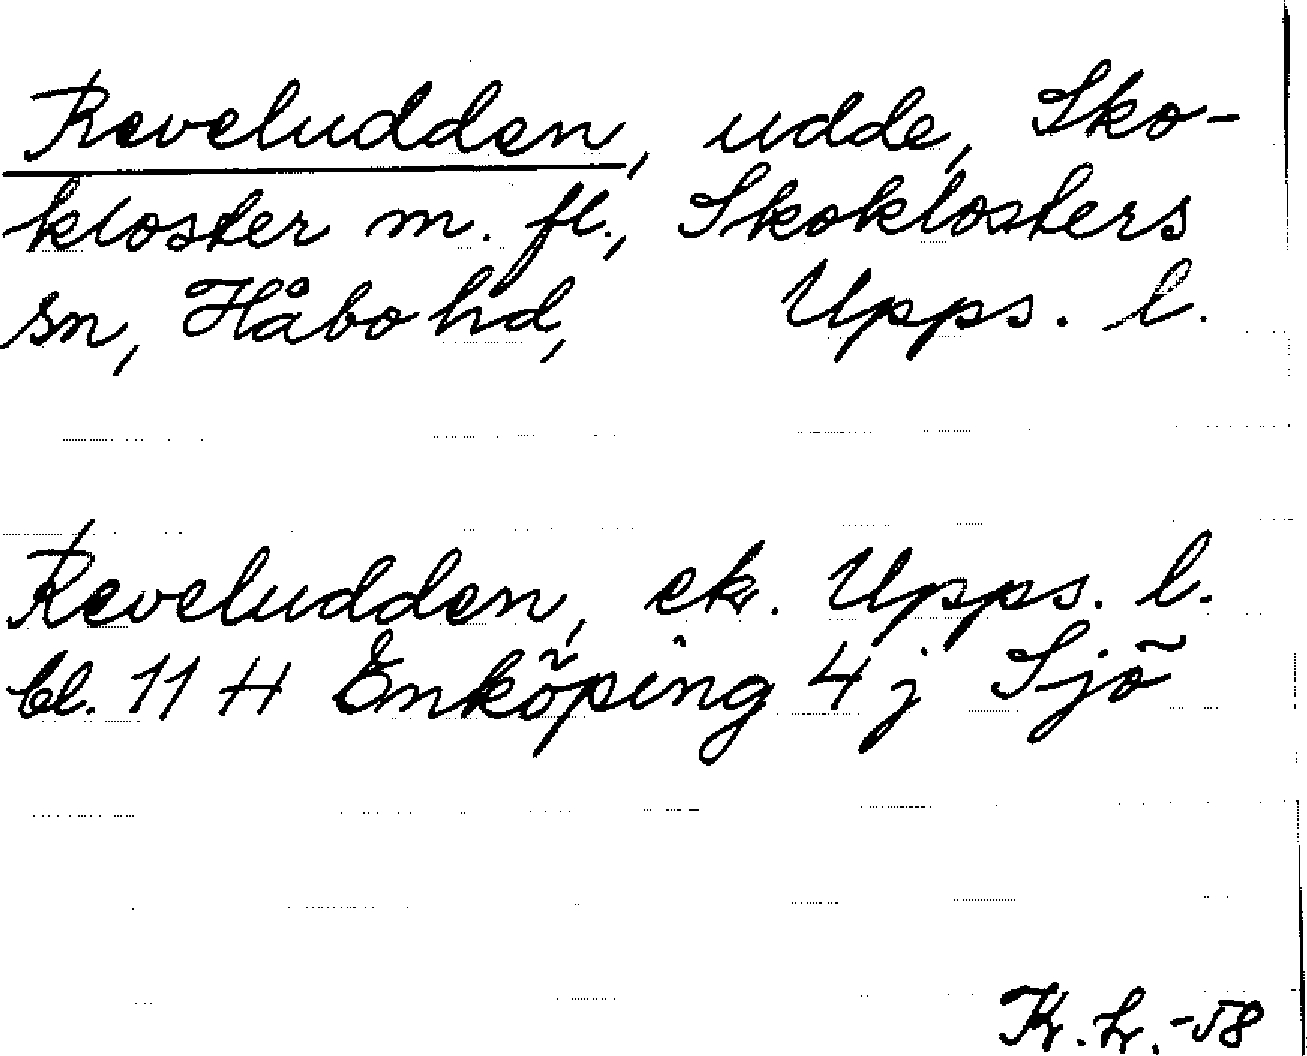 Reveludden, udde, Sko-
kloster m. fl., Skoklosters
sn, Håbo hd, Upps. l.
Reveludden, ek. Upps. l.
bl. 11 H Enköping 4 j Sjö
-58